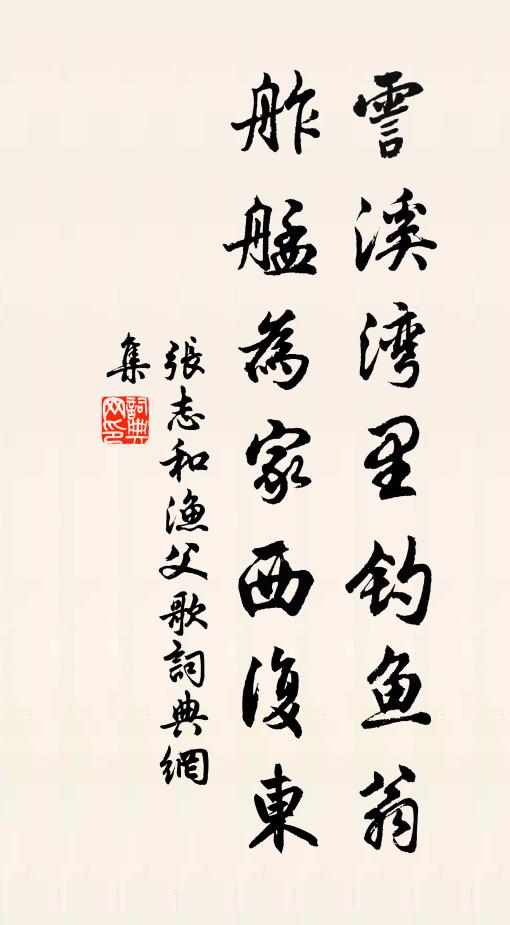 霅溪湾里钓鱼翁
舴艋為家西復東
張志和渔父歌詞典網
集
詞典
网印